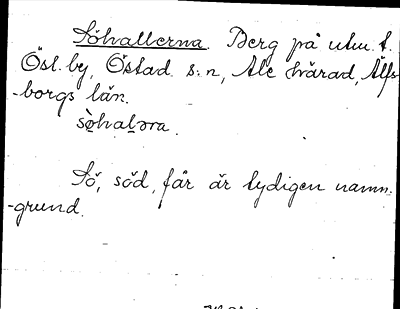 Söhallerna. Berg på utm. t.
Ösl. by, Östad s:n, Ale härad, Älfs-
-borgs län.
sö̀haləra.
Sö, söd, får är tydligen namn-
-grund.